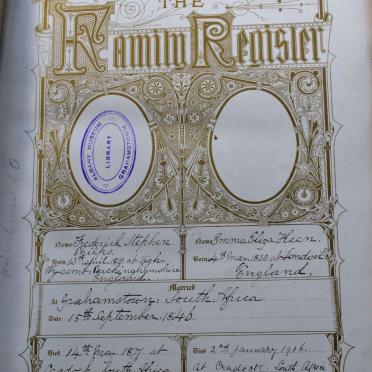 THE
Family Register
ALBANY MUSEUM
LIBRARY
GRAHAMSTOWN
Name Frederick Stephen
Born 15 April at High
Wycomb. Buckinghamshire
England.
Name Emma Eliza Keen.
Born 4th May 1830 at London
England.
Married
At Grahamstown, South Africa
Date 15th September 1846.
Died 14th May 1871. at
Cradock, South Africa
Died 2nd January 1906.
At Cradock South Africa